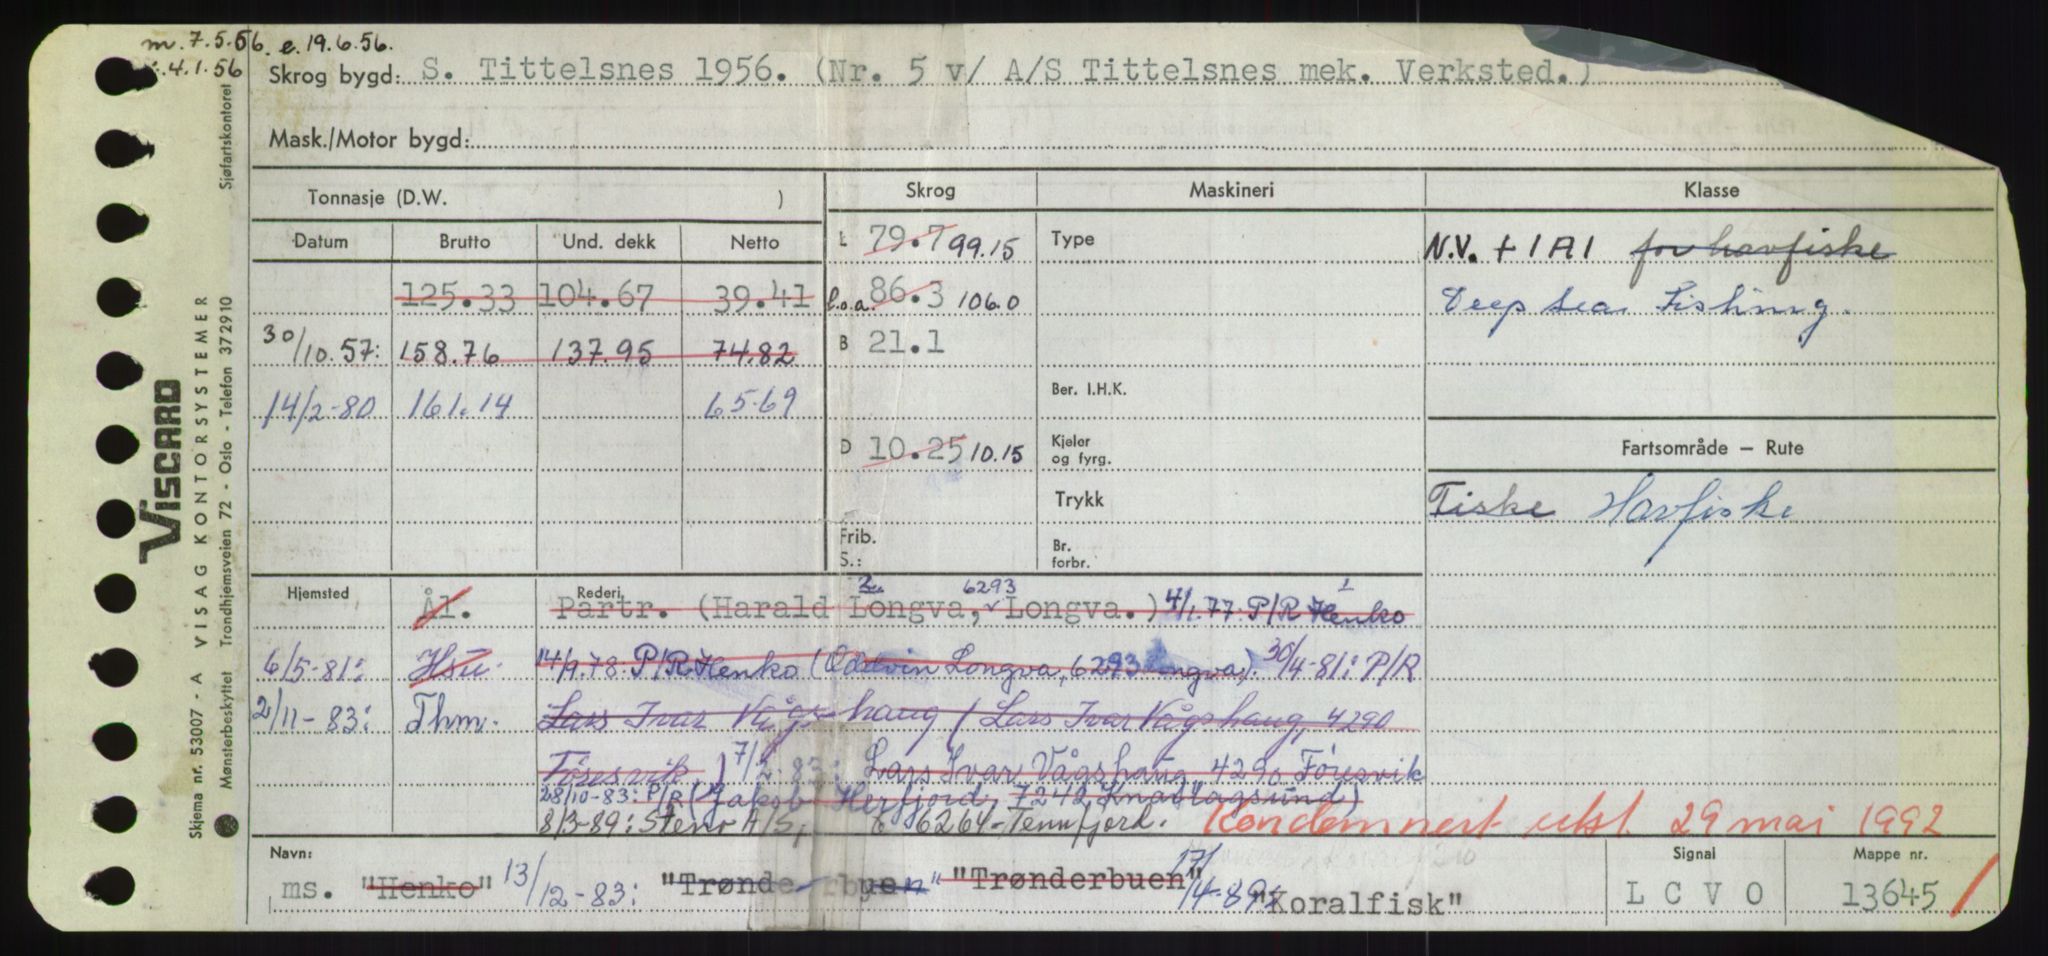 m. 7.5.56. e. 19.6.56.
4.1.56
Skrog bygd: S. Tittelsnes 1956. (Nr. 5 v/ A/S Tittelsnes mek. Verksted.)
Mask./Motor bygd:
Tonnasje (D.W. )
Skrog
Maskineri
Klasse
Datum Brutto Und. dekk Netto
L 79.7 99.15
Type
N.V. + 1A1 for havfiske
125.33 104.67 39.41
l.o.a. 86.3 106.0
Deep sea Fishing.
30/10.57: 158.76 137.95 74.82
B 21.1
14/2-80 161.14 65.69
Ber. I.H.K.
D 10.25 10.15
Kjeler
og fyrg.
Fartsområde — Rute
Trykk
Fiske Havfiske
Frib.
S.:
Br.
forbr.
Hjemsted
Ål.
Rederi
2. 6293 1
Partr. (Harald Longva, Longva.) 4/1.77. P/R Henko
6/5-81: Hsu.
14/9.78: P/R Henko (Oddvin Longva, 6293 Longva). 30/4-81: P/R
2/11-83: Thm.
Lars Ivar Vågshaug (Lars Ivar Vågshaug, 4290
Føresvik.) 7/2-83: Lars Ivar Vågshaug, 4290 Føresvik
28/10-83: P/R (Jakob Herfjord, 7242 Knarlagsund)
8/3-89: Stenv A/S, 6264 Tennfjord. Kondemnert utsl. 29 mai 1992
Navn:
ms. "Henko" 13/12-83: "Trønderbuen" "Trønderbuen" 17/4-89: "Koralfisk"
Signal
L C V O
Mappe nr.
13645
Skjema nr. 53007 - A VISAG KONTORSYSTEMER
VISCARD
Mønsterbeskyttet Trondhjemsveien 72 - Oslo - Telefon 372910 Sjøfartskontoret